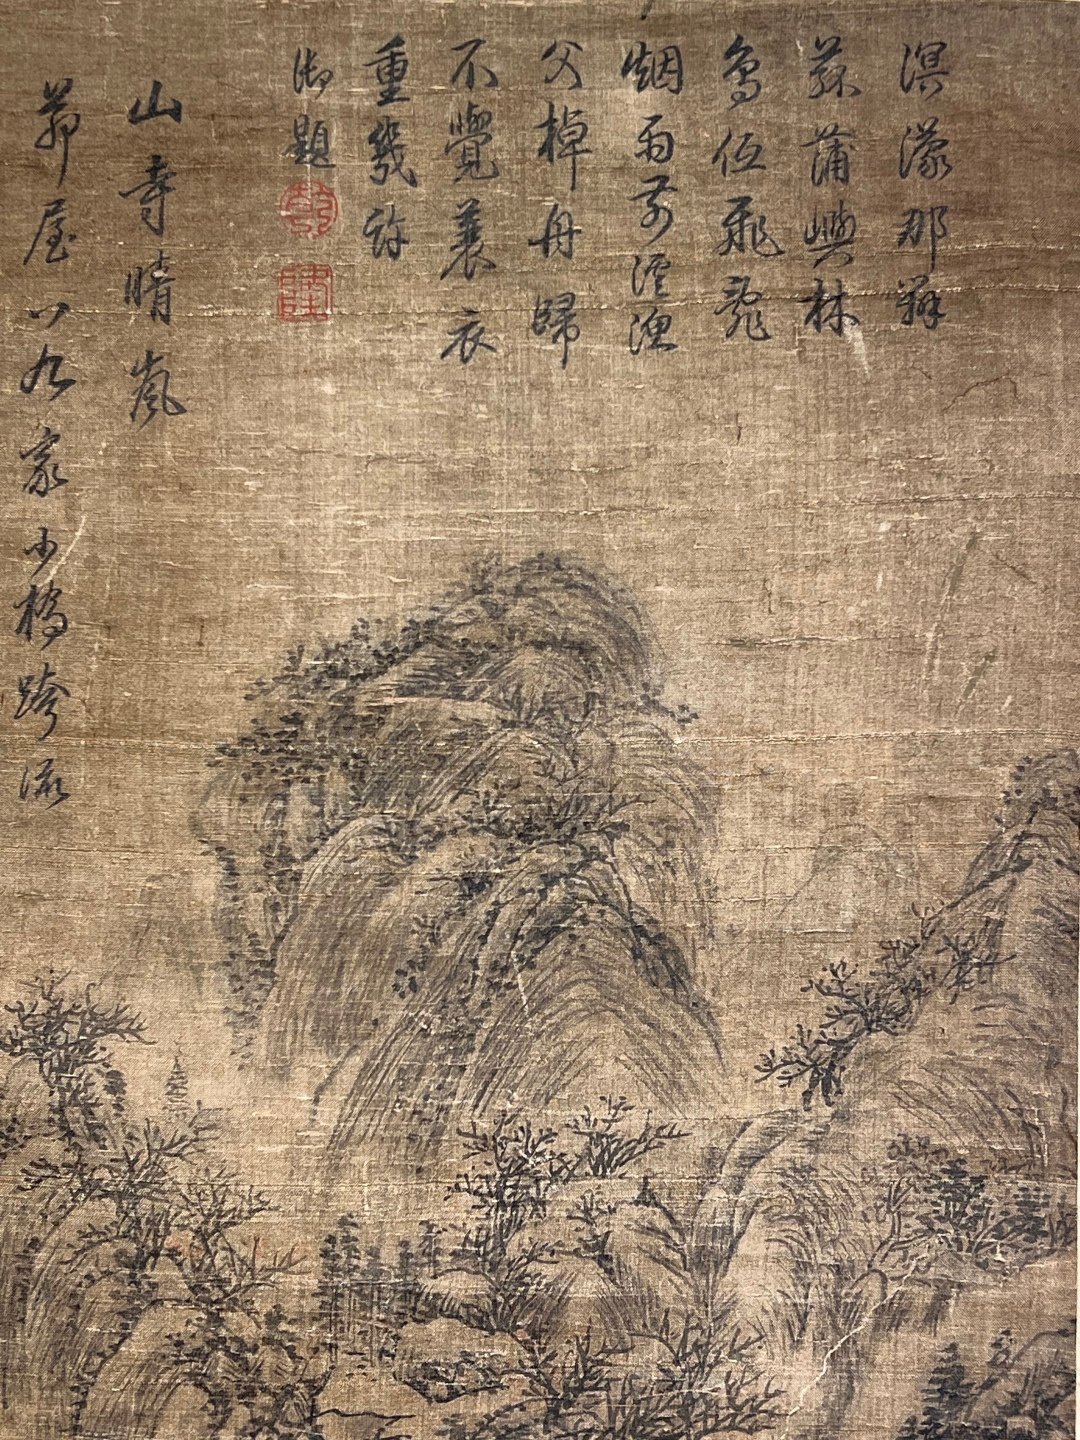 溟濛那辨
菰蒲與林
鳥低飛亂
烟雨前溪漁
父棹舟歸
不覺蓑衣
重幾許
御題
乾
隆
山寺晴嵐
茆屋八九家小橋跨流